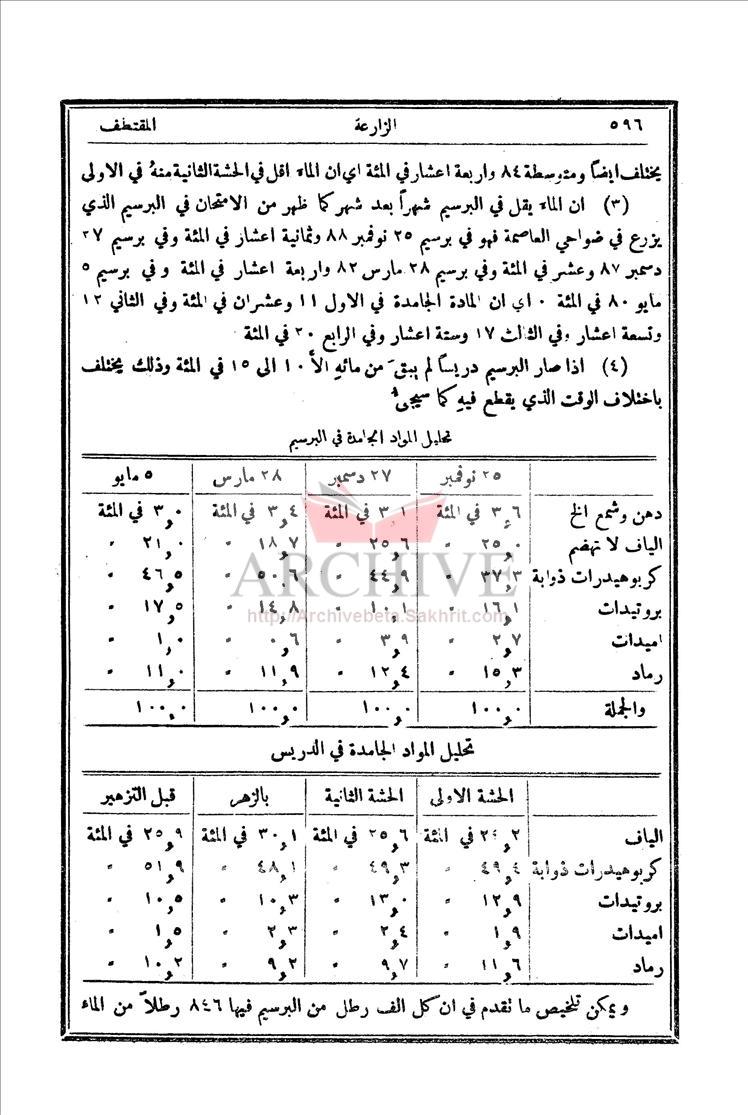 ٥٩٦ الزارعة المقتطف
يختلف ايضاً ومتوسطة ٨٤ واربعة اعشار في المئة اي ان الماء اقل في الحشة الثانية منهُ في الاولى
(٣) ان الماء يقل في البرسيم شهراً بعد شهر كما ظهر من الامتحان في البرسيم الذي
يزرع في ضواحي العاصمة فهو في برسيم ٢٥ نوفمبر ٨٨ وثمانية اعشار في المئة وفي برسيم ٢٧
دسمبر ٨٧ وعشر في المئة وفي برسيم ٢٨ مارس ٨٢ واربعة اعشار في المئة وفي برسيم ٥
مايو ٨٠ في المئة ٠ اي ان المادة الجامدة في الاول ١١ وعشران في المئة وفي الثاني ١٢
وتسعة اعشار وفي الثالث ١٧ وستة اعشار وفي الرابع ٢٠ في المئة
(٤) اذا صار البرسيم دريساً لم يبقَ من مائهِ الأ ١٠ الى ١٥ في المئة وذلك يختلف
باختلاف الوقت الذي يقطع فيهِ كما سيجيءُ
تحليل المواد الجامدة في البرسيم
٢٥ نوفمبر ٢٧ دسمبر ٢٨ مارس ٥ مايو
دهن وشمع الخ ٣,٦ في المئة ٣,١ في المئة ٣,٤ في المئة ٣,٠ في المئة
الياف لا تهضم ٢٥,٠ " ٢٥,٦ " ١٨,٧ " ٢١,٠ "
كربوهيدرات ذوابة ٣٧,٣ " ٤٤,٩ " ٥٠,٦ " ٤٦,٥ "
بروتيدات ١٦,١ " ١٠,١ " ١٤,٨ " ١٧,٥ "
اميدات ٢,٧ " ٣,٩ " ٠,٦ " ١,٠ "
رماد ١٥,٣ " ١٢,٤ " ١١,٩ " ١١,٠ "
والجملة ١٠٠,٠ ١٠٠,٠ ١٠٠,٠ ١٠٠,٠
ARCHIVE
http://Archivebeta.Sakhrit.com
تحليل المواد الجامدة في الدريس
الحشة الاولى الحشة الثانية بالزهر قبل التزهير
الياف ٢٤,٢ في المئة ٢٥,٦ في المئة ٣٠,١ في المئة ٢٥,٩ في المئة
كربوهيدرات ذوابة ٤٩,٤ " ٤٩,٣ " ٤٨,١ " ٥١,٩ "
بروتيدات ١٢,٩ " ١٣,٠ " ١٠,٣ " ١٠,٥ "
اميدات ١,٩ " ٢,٤ " ٢,٣ " ١,٥ "
رماد ١١,٦ " ٩,٧ " ٩,٢ " ١٠,٢ "
ويمكن تلخيص ما نقدم في ان كل الف رطل من البرسيم فيها ٨٤٦ رطلاً من الماء